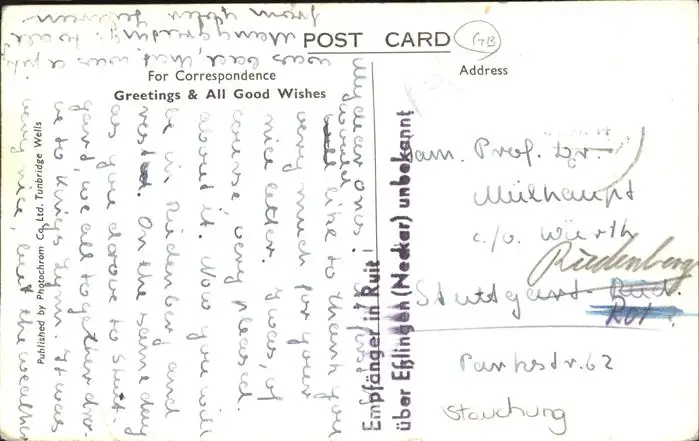 POST CARD
GB
For Correspondence
Greetings & All Good Wishes
Address
Published by Photochrom Co., Ltd. Tunbridge Wells
My dear ones!
I would like to thank you
very much for your
nice letter. I was, of
course, very pleased
about it. Now you will
be in Riedenberg and
rested. On the same day
as you drove to Stutt-
gart, we all together dro-
ve to Kings Lynn. It was
very nice, but the weather
was bad, that was a pity.
Many greetings to all
from your
Empfänger in Ruit!
über Eßlingen (Neckar) unbekannt
Fam. Prof. Dr.
Mülhaupt
c/o Würth
Riedenberg
Stuttgart-Ried.
Rot?
Parkstr. 62